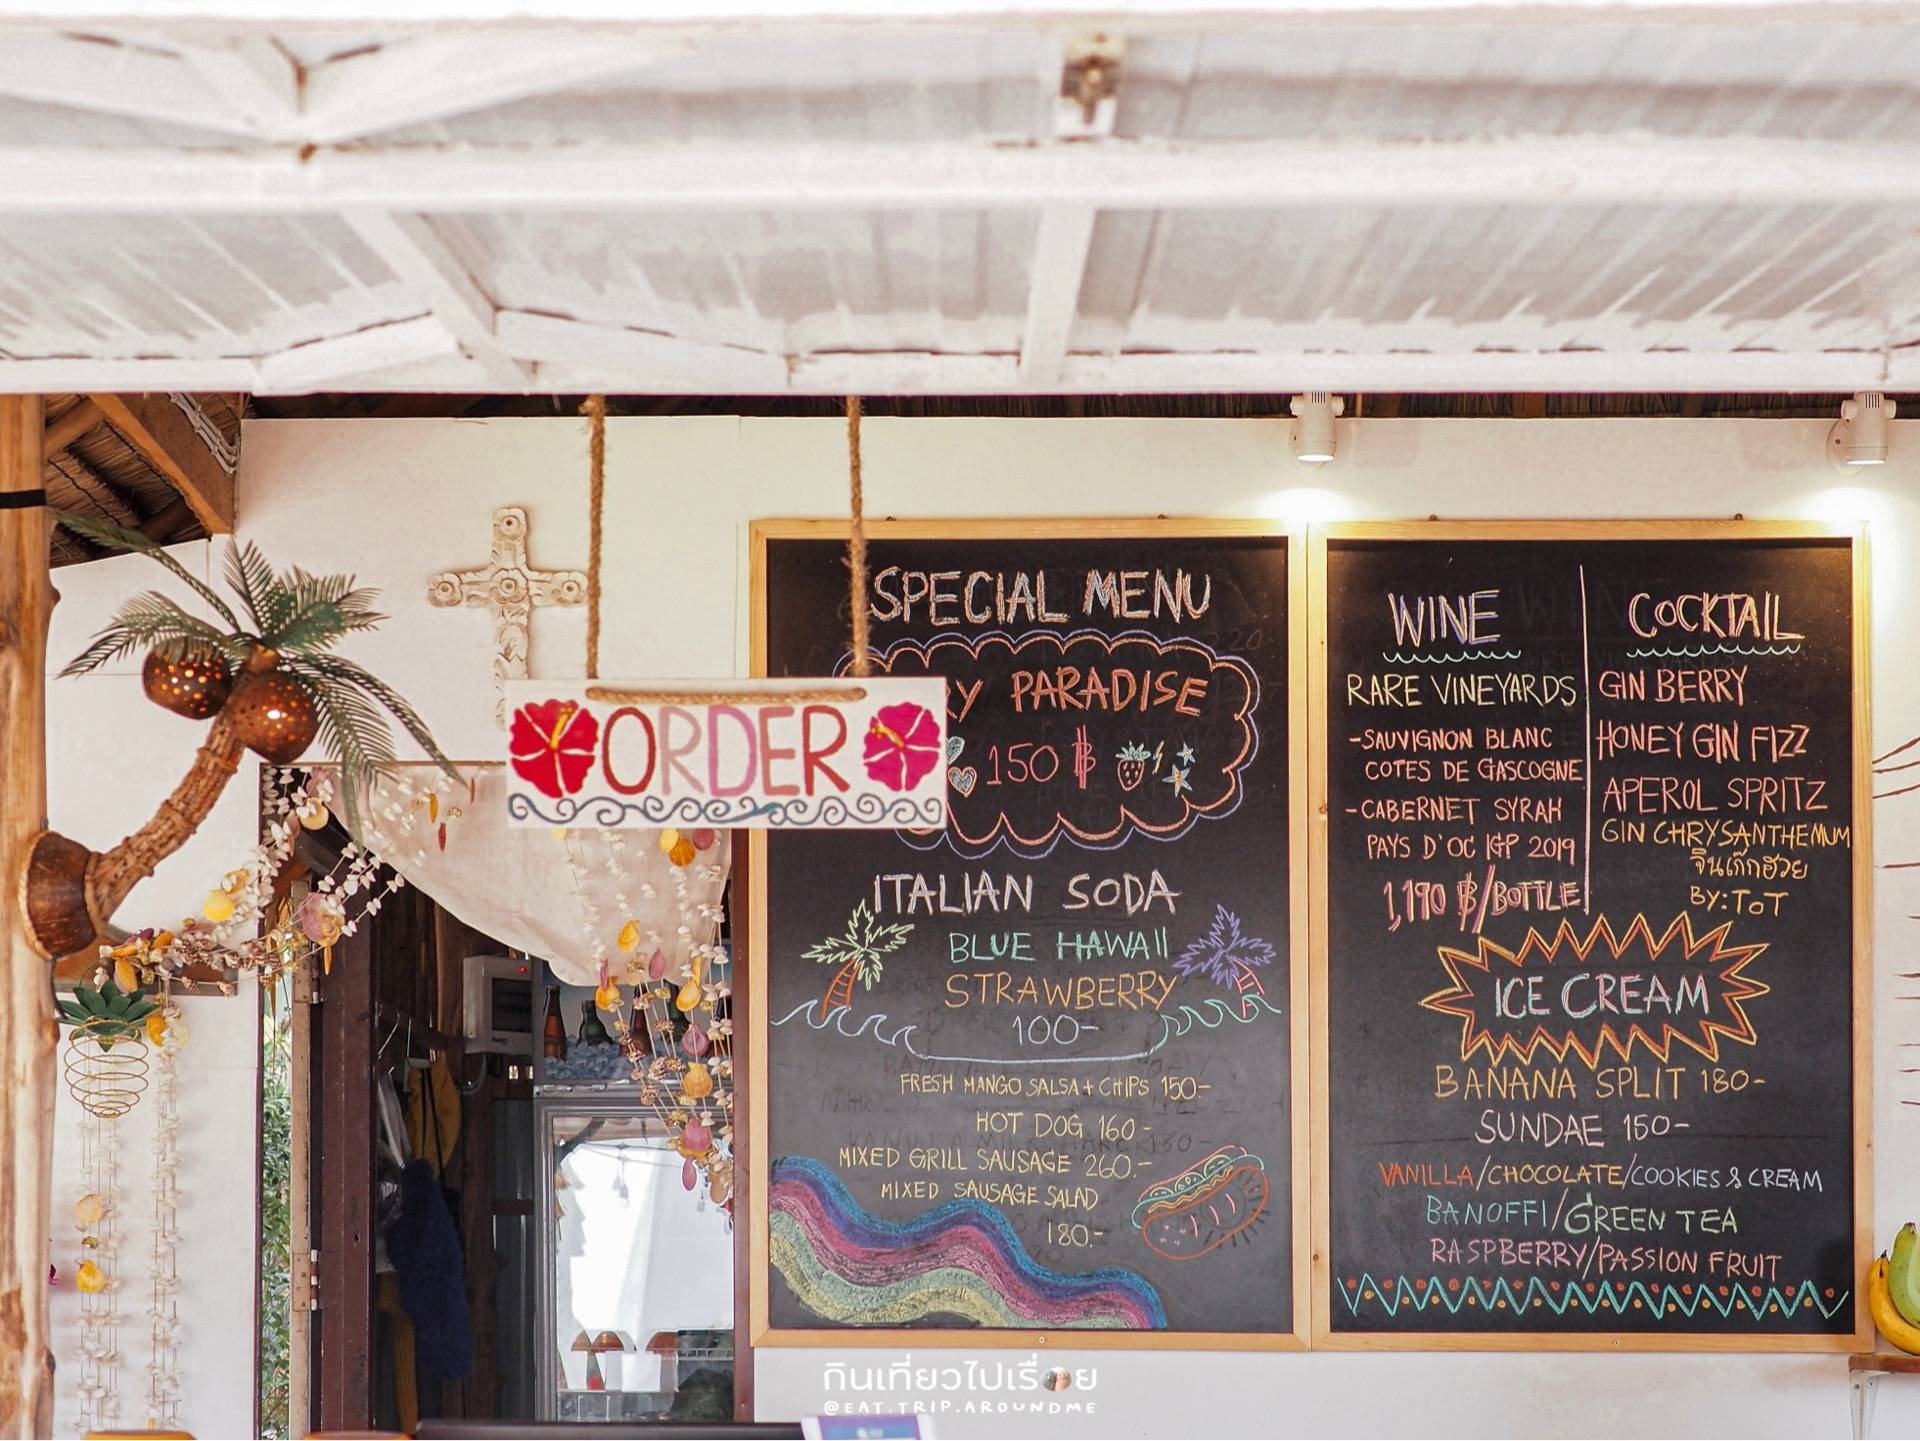 ORDER
SPECIAL MENU
PARADISE
150 ฿
ITALIAN SODA
BLUE HAWAII
STRAWBERRY
100-
FRESH MANGO SALSA + CHIPS 150-
HOT DOG 160-
MIXED GRILL SAUSAGE 260.-
MIXED SAUSAGE SALAD
180.-
WINE
RARE VINEYARDS
-SAUVIGNON BLANC
COTES DE GASCOGNE
-CABERNET SYRAH
PAYS D'OC IGP 2019
1,190 ฿/BOTTLE
COCKTAIL
GIN BERRY
HONEY GIN FIZZ
APEROL SPRITZ
GIN CHRYSANTHEMUM
จินเก๊กฮวย
BY: TOT
ICE CREAM
BANANA SPLIT 180-
SUNDAE 150-
VANILLA/CHOCOLATE/COOKIES & CREAM
BANOFFI/GREEN TEA
RASPBERRY/PASSION FRUIT
กินเที่ยวไปเรื่อย
@EAT.TRIP.AROUNDME